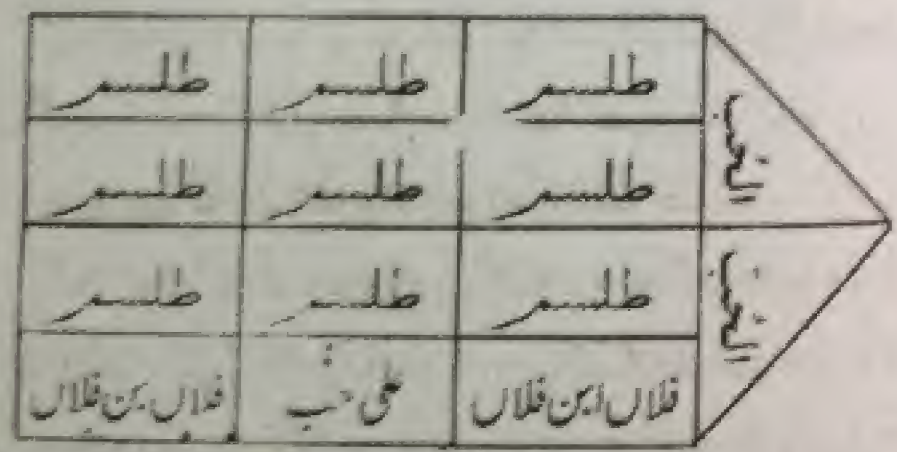 طلسم طلسم طلسم
طلسم طلسم طلسم
طلسم طلسم طلسم
فلاں ابن فلاں علی حب فلاں بن فلاں